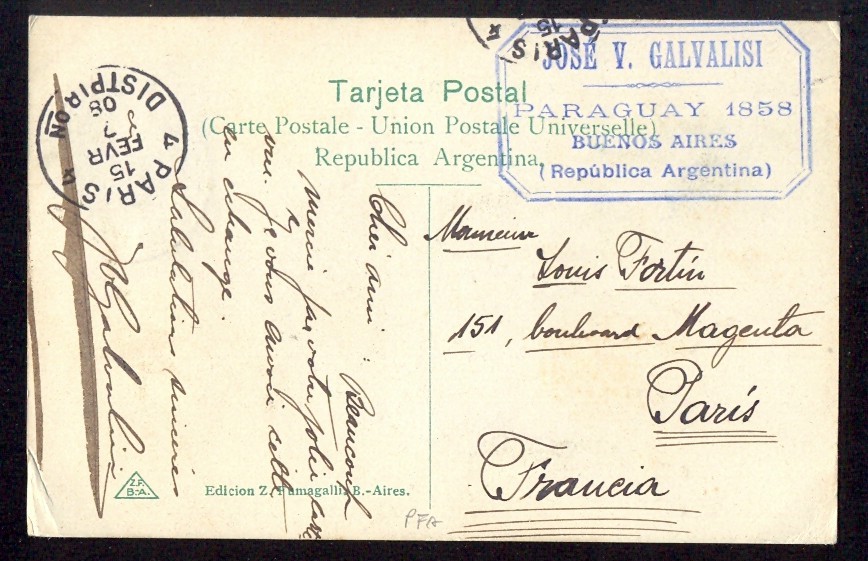 Tarjeta Postal
(Carte Postale - Union Postale Universelle)
Republica Argentina.
JOSÉ V. GALVALISI
PARAGUAY 1858
BUENOS AIRES
(República Argentina)
PARIS
15
4 PARIS
DISTRIBON
15
FEVR
08
Monsieur
Louis Fortin
151, boulevard Magenta
Paris
Francia
Cher ami: Beaucoup
merci par votre jolie carte
Je vous envoie cette
en echange.
Salutations sinceres
JVGalvalisi
Z.F.
B.-A.
Edicion Z. Fumagalli, B.-Aires.
PFA